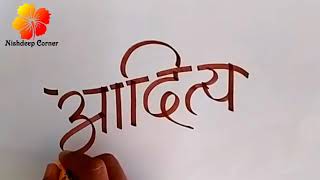 Nishdeep Corner
आदित्य